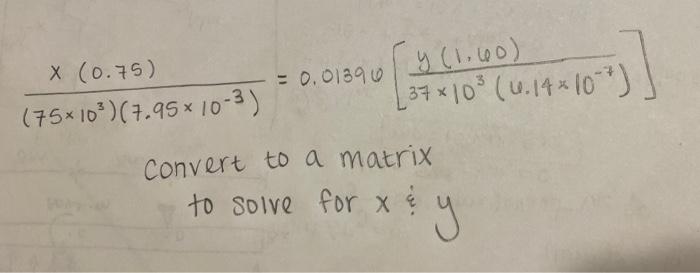 x (0.75) / (75×10³)(7.95×10⁻³) = 0.01396 [ y (1.60) / 37×10³ (6.14×10⁻⁷) ]
convert to a matrix
to solve for x & y